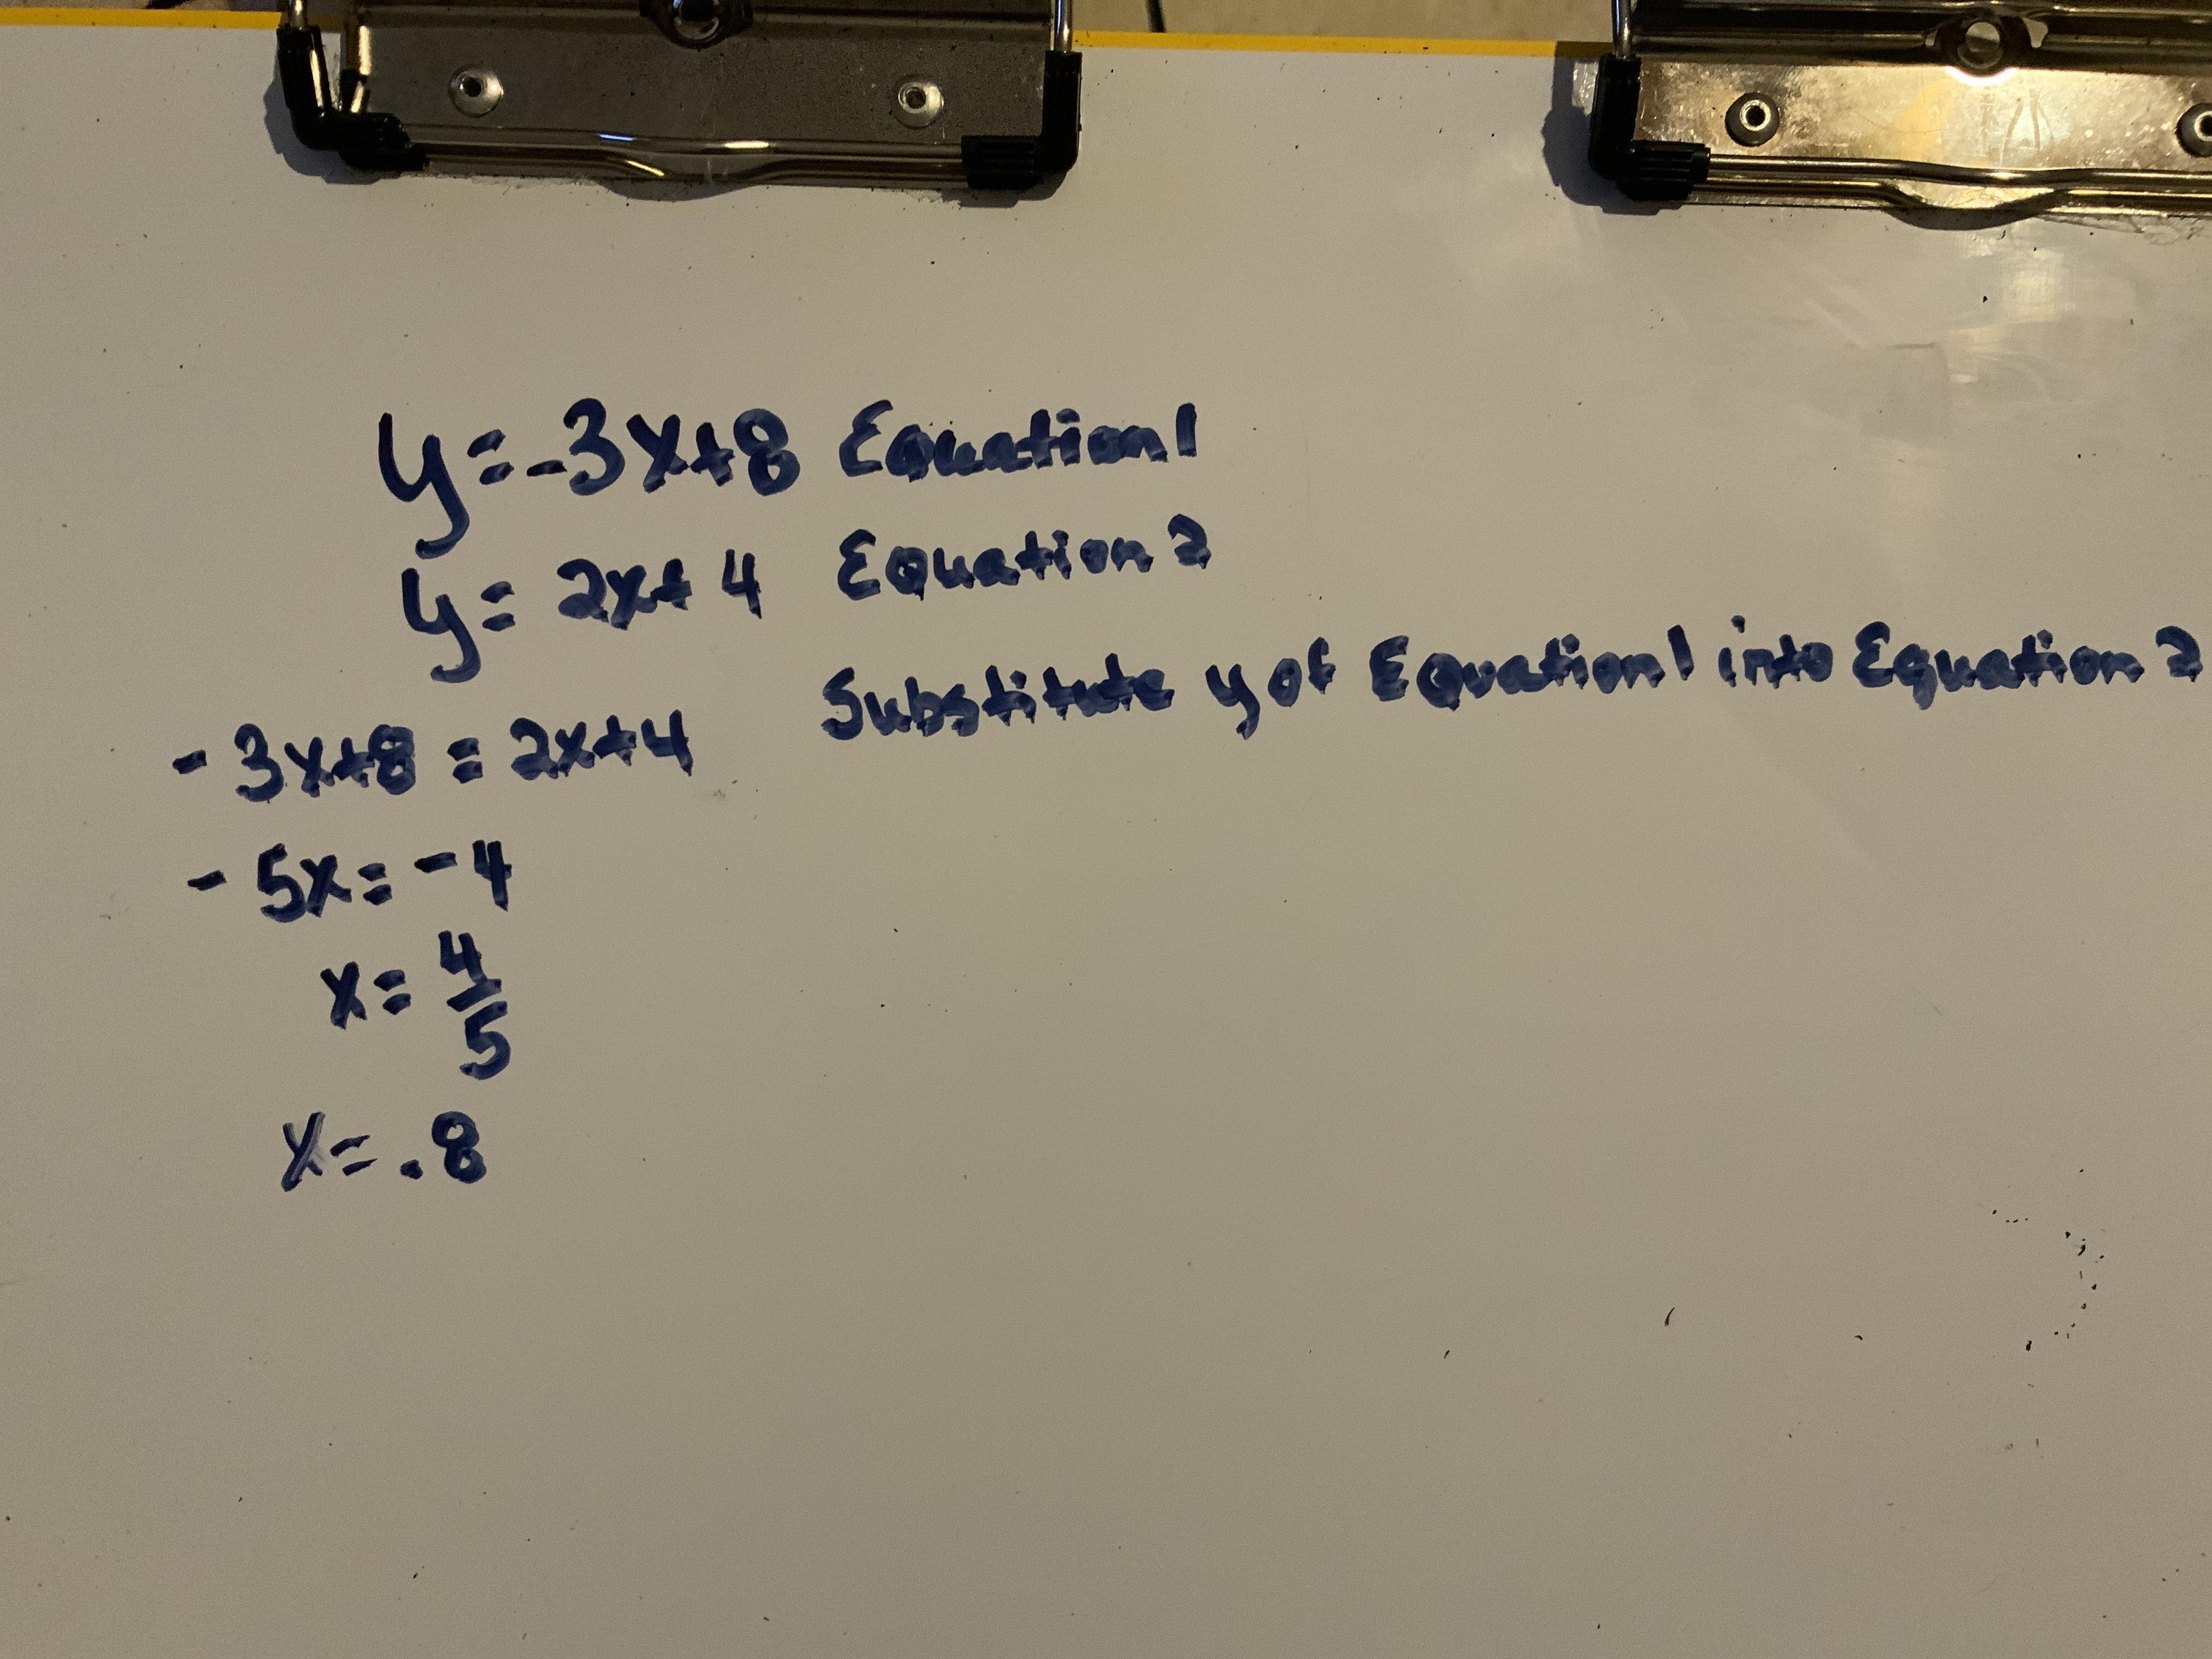 y=-3x+8 Equation 1
y= 2x+ 4 Equation 2
Substitute y of Equation 1 into Equation 2
-3x+8 = 2x+4
-5x= -4
x= 4/5
x= .8